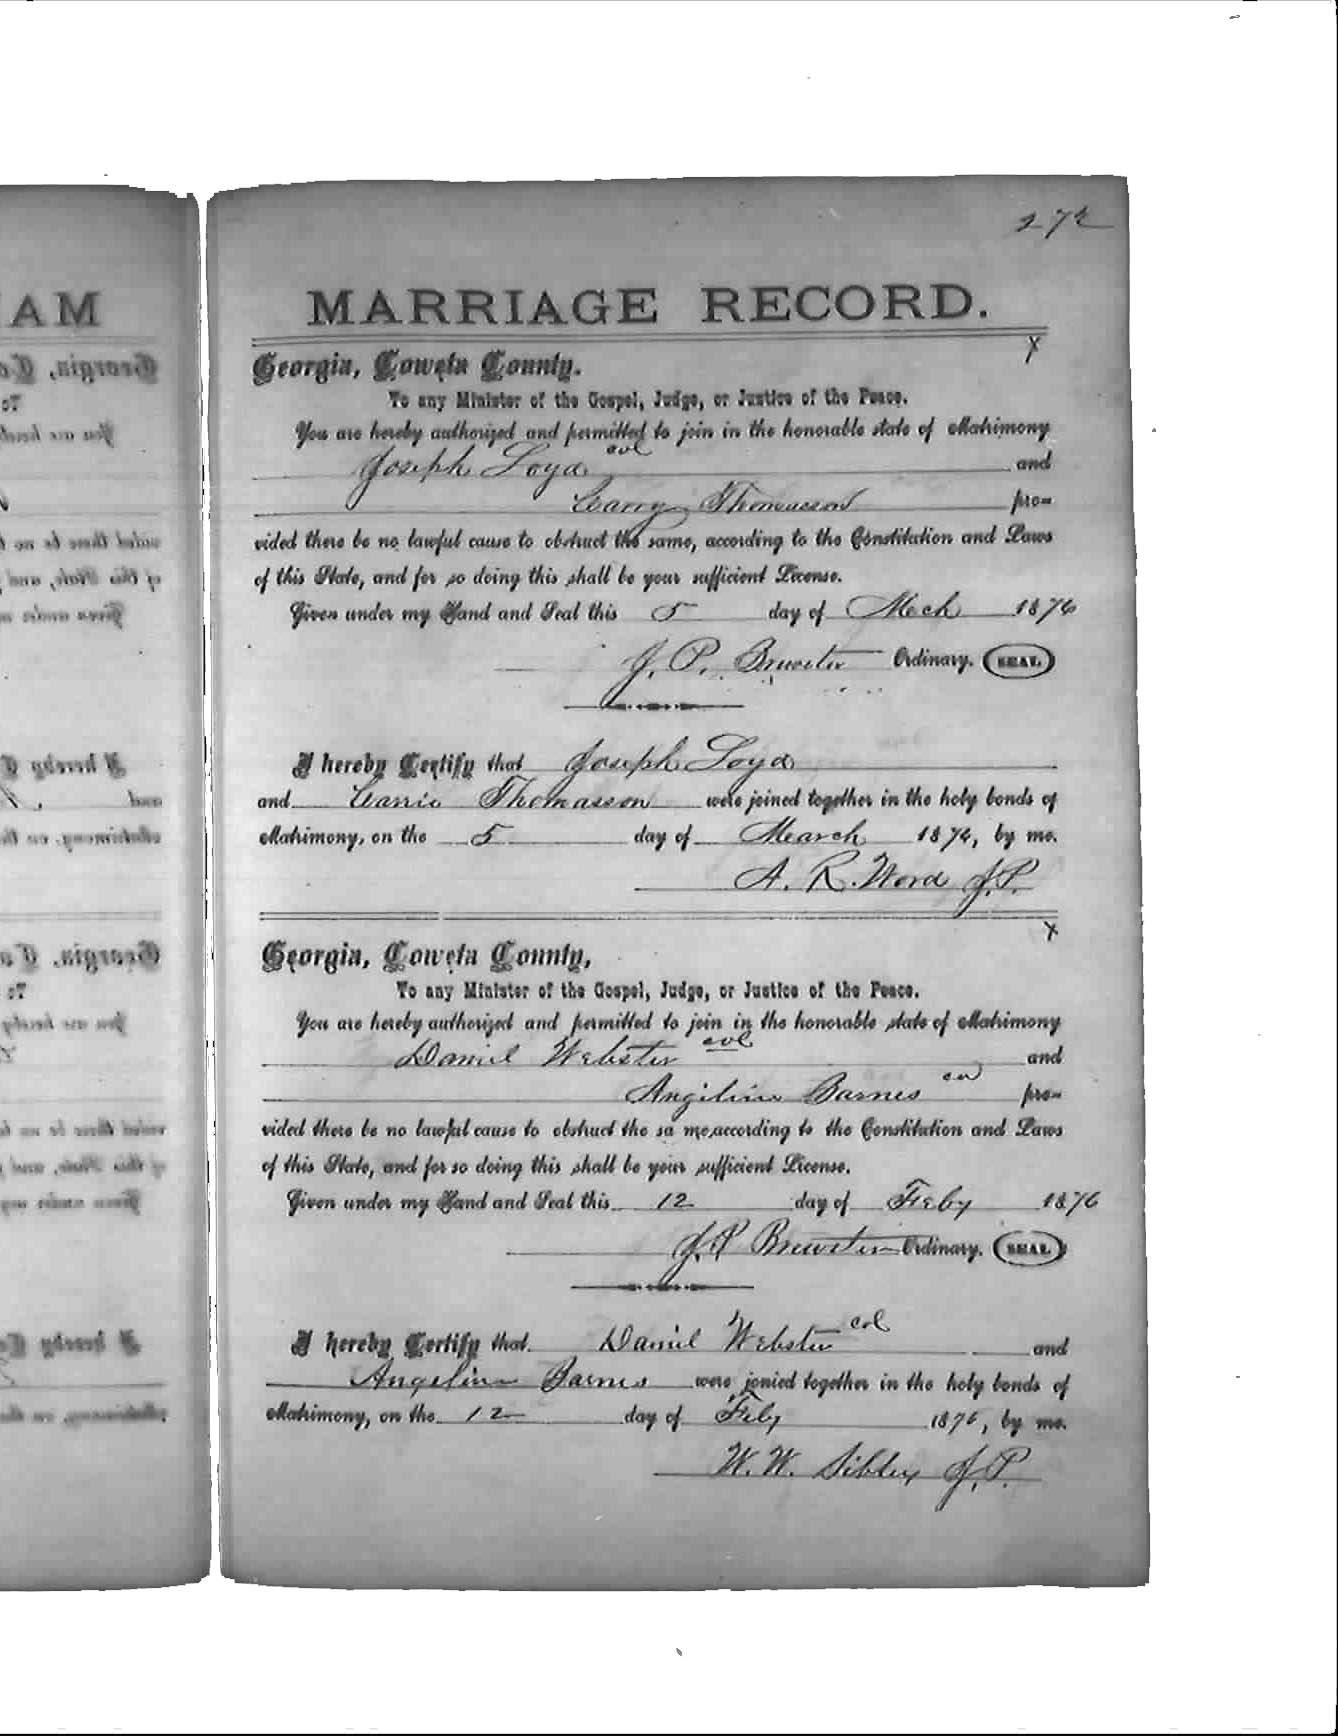 272
MARRIAGE RECORD.
x
Georgia, Coweta County.
To any Minister of the Gospel, Judge, or Justice of the Peace.
You are hereby authorized and permitted to join in the honorable state of Matrimony
Joseph Loyd col and
Carry Thomasson pro-
vided there be no lawful cause to obstruct the same, according to the Constitution and Laws
of this State, and for so doing this shall be your sufficient License.
Given under my Hand and Seal this 5 day of Mech 1876
J. P. Brewster Ordinary. SEAL
I hereby Certify that Joseph Loyd
and Carrie Thomasson were joined together in the holy bonds of
Matrimony, on the 5 day of March 1876, by me.
A. R. Word J.P.
x
Georgia, Coweta County,
To any Minister of the Gospel, Judge, or Justice of the Peace.
You are hereby authorized and permitted to join in the honorable state of Matrimony
Daniel Webster col and
Angiline Barnes col pro-
vided there be no lawful cause to obstruct the sa me, according to the Constitution and Laws
of this State, and for so doing this shall be your sufficient License.
Given under my Hand and Seal this 12 day of Feby 1876
J. P Brewster Ordinary. SEAL
I hereby Certify that Daniel Webster col and
Angeline Barnes were jonied together in the holy bonds of
Matrimony, on the 12 day of Feby 1876, by me.
W. W. Sibley J. P.